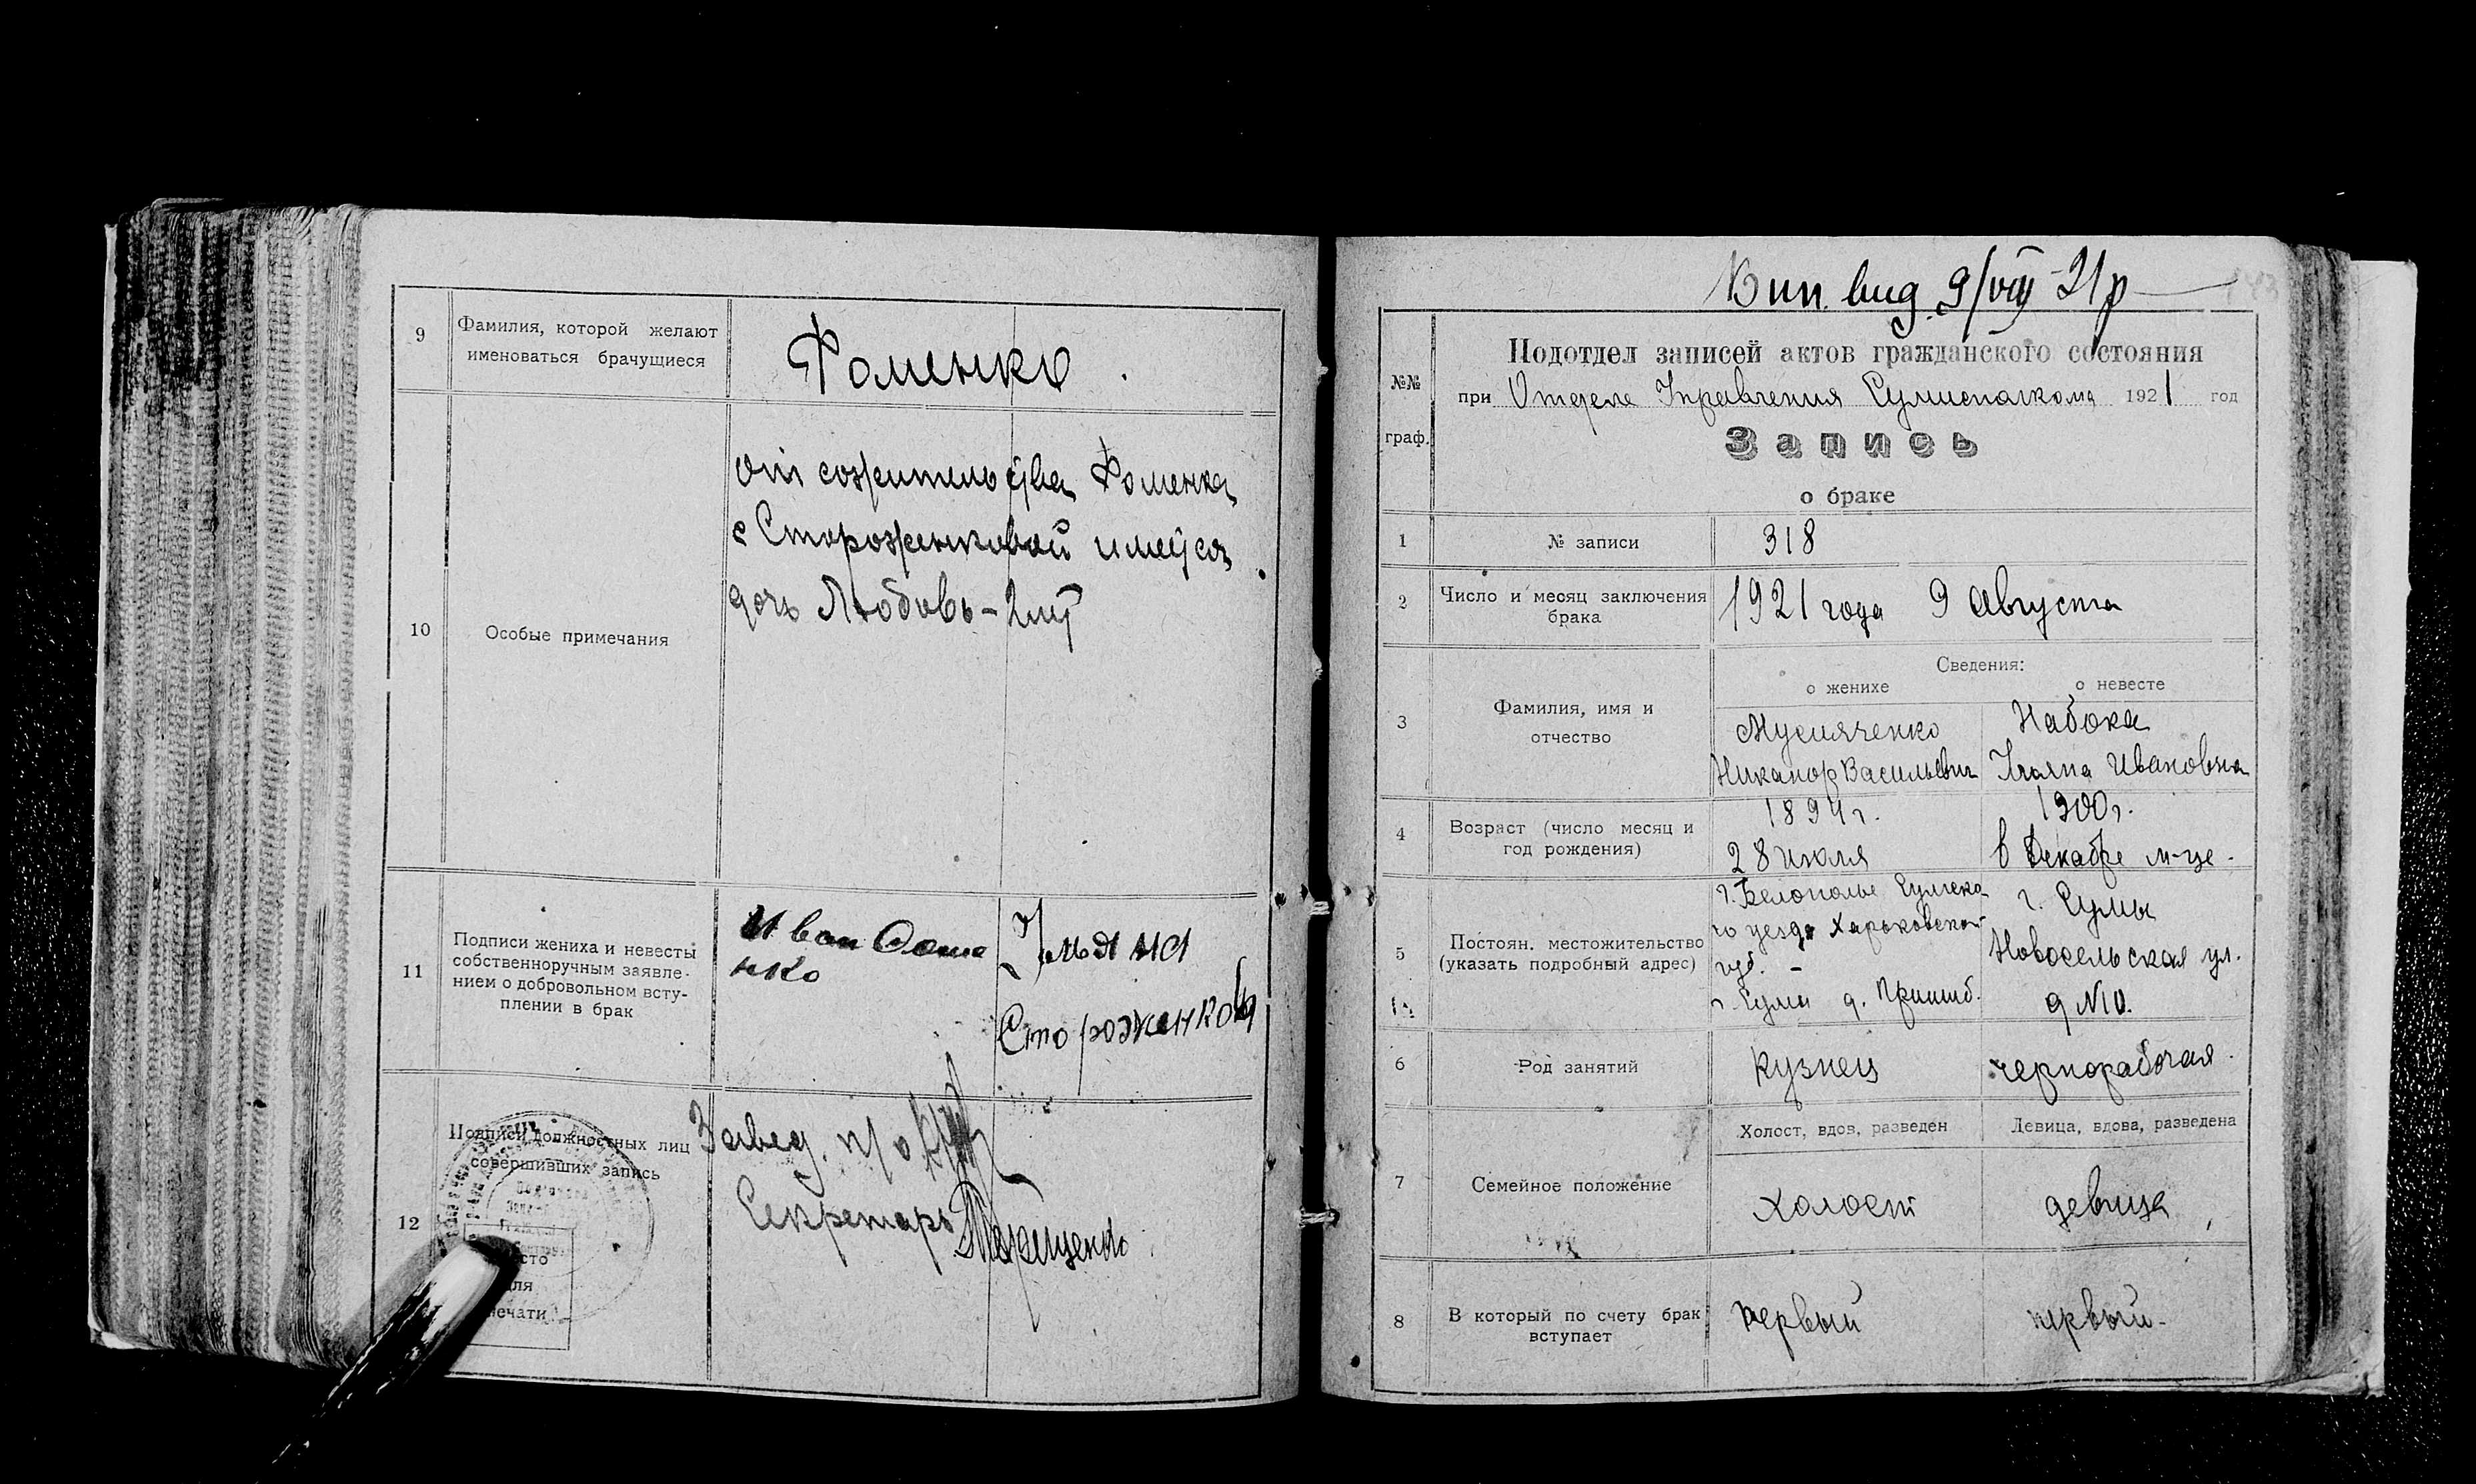 9
Фамилия, которой желают
именоваться брачущиеся
Фоменко
10
Особые примечания
от сожительства Фоменка
с Стороженковой имеется
дочь Любовь-
11
Подписи жениха и невесты
собственноручным заявле-
нием о добровольном всту-
плении в брак
Иван Фоме
нко
Ульяна
Стороженкова
12
Подписи должностных лиц
совершивших запись
Завед. п/о
Секретарь
сто
для
печати
Вип. вид. 9/VIII-21р
№№
граф.
Подотдел записей актов гражданского состояния
при Отделе Управления Сумисполкома 1921 год
Запись
о браке
1
№ записи
318
2
Число и месяц заключения
брака
1921 года 9 Августа
3
Фамилия, имя и
отчество
Сведения:
о женихе
о невесте
Мусияченко
Никанор Васильевич
Набока
Ивановна
4
Возраст (число месяц и
год рождения)
1894 г.
28 июля
1900 г.
в Декабре м-це.
5
Постоян. местожительство
(указать подробный адрес)
г. Белополье Сумска
го уезда Харьковской
губ. -
г. Сумы
г. Сумы
Новосельская ул.
д №10.
6
Род занятий
кузнец
чернорабочая.
7
Семейное положение
Холост, вдов, разведен
Девица, вдова, разведена
холост
девица
8
В который по счету брак
вступает
первый
первый-